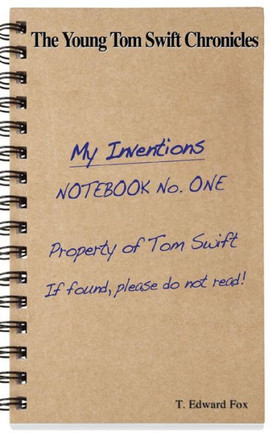 The Young Tom Swift Chronicles
My Inventions
NOTEBOOK No. ONE
Property of Tom Swift
If found, please do not read!
T. Edward Fox